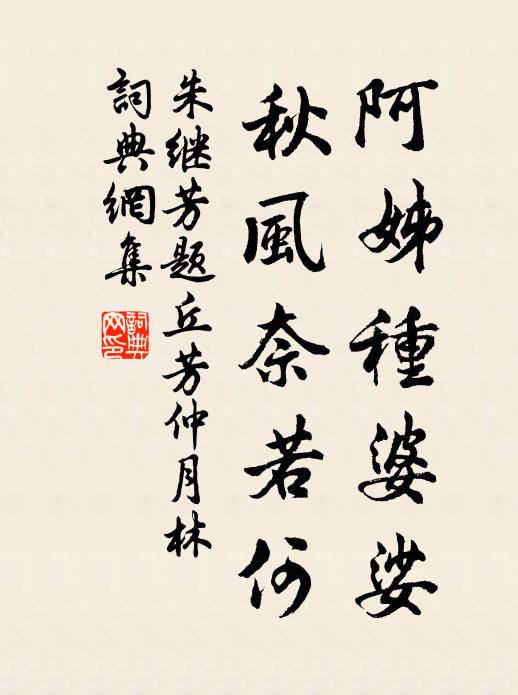 阿姊種婆娑
秋風奈若何
朱继芳题丘芳仲月林
詞典網集
詞典网印